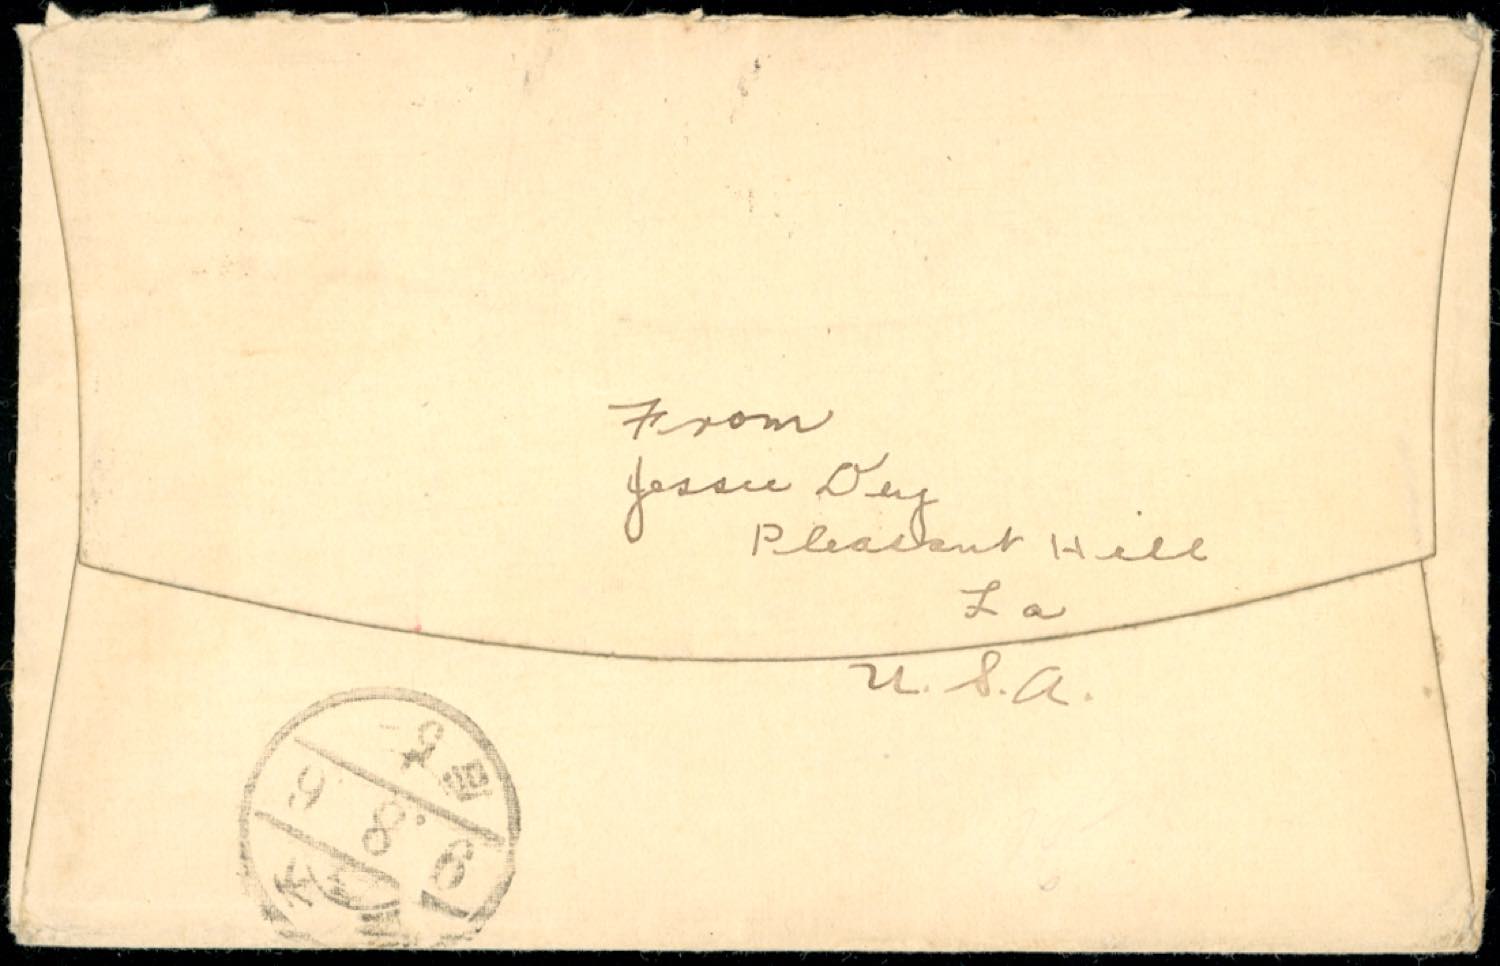 From
Jessie Dey
Pleasant Hill
La
U.S.A.
9.8.6